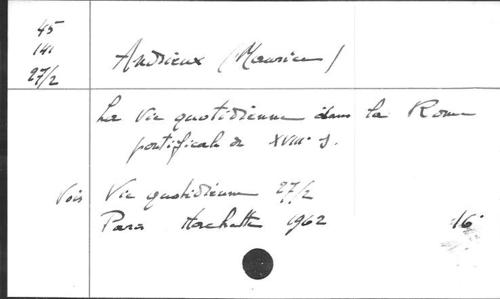 45
141
27/2
Andrieux (Maurice)
La Vie quotidienne dans la Rome
pontificale du XVIIIe s.
Vois Vie quotidienne 27/2
Paris Hachette 1962 16°